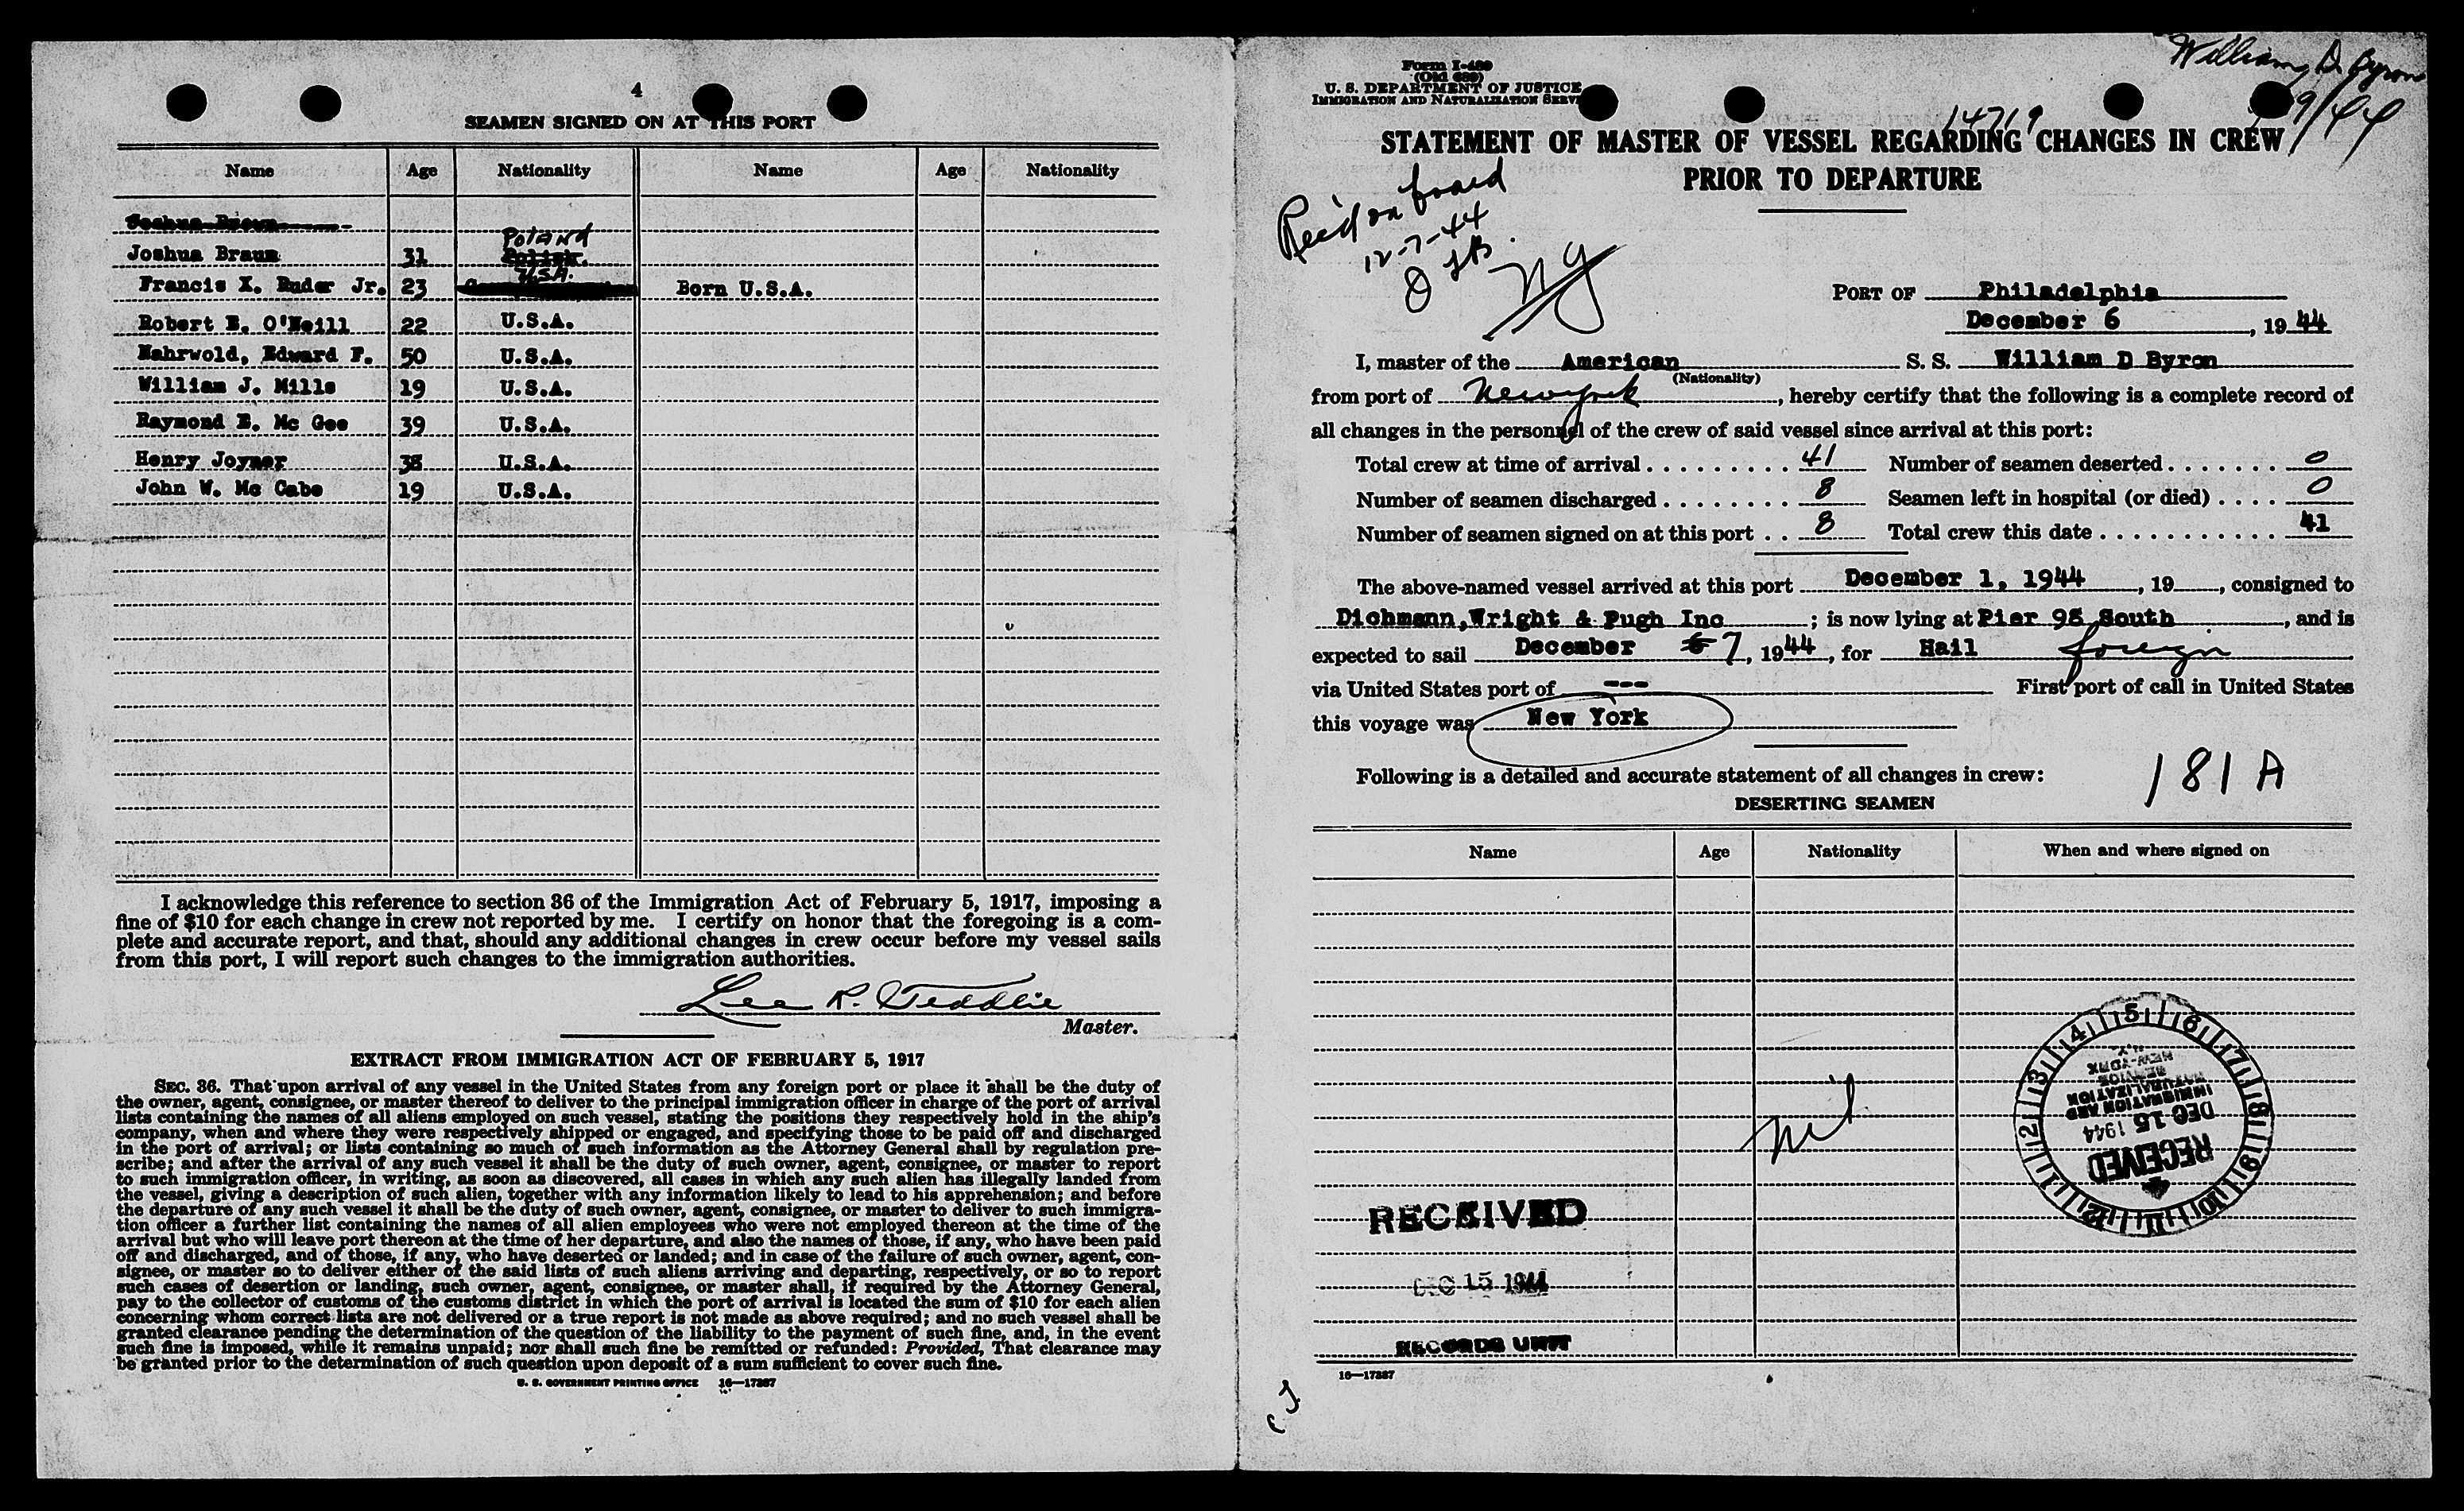 4
SEAMEN SIGNED ON AT THIS PORT
Name Age Nationality Name Age Nationality
Joshua Braun 31 Poland Polish.
Francis X. Ruder Jr. 23 U.S.A. Born U.S.A.
Robert E. O'Neill 22 U.S.A.
Nahrwold, Edward F. 50 U.S.A.
William J. Mills 19 U.S.A.
Raymond E. Mc Gee 39 U.S.A.
Henry Joyner 38 U.S.A.
John W. Mc Cabe 19 U.S.A.
I acknowledge this reference to section 36 of the Immigration Act of February 5, 1917, imposing a
fine of $10 for each change in crew not reported by me. I certify on honor that the foregoing is a com-
plete and accurate report, and that, should any additional changes in crew occur before my vessel sails
from this port, I will report such changes to the immigration authorities.
Lee R.
Master.
EXTRACT FROM IMMIGRATION ACT OF FEBRUARY 5, 1917
SEC. 36. That upon arrival of any vessel in the United States from any foreign port or place it shall be the duty of
the owner, agent, consignee, or master thereof to deliver to the principal immigration officer in charge of the port of arrival
lists containing the names of all aliens employed on such vessel, stating the positions they respectively hold in the ship's
company, when and where they were respectively shipped or engaged, and specifying those to be paid off and discharged
in the port of arrival; or lists containing so much of such information as the Attorney General shall by regulation pre-
scribe; and after the arrival of any such vessel it shall be the duty of such owner, agent, consignee, or master to report
to such immigration officer, in writing, as soon as discovered, all cases in which any such alien has illegally landed from
the vessel, giving a description of such alien, together with any information likely to lead to his apprehension; and before
the departure of any such vessel it shall be the duty of such owner, agent, consignee, or master to deliver to such immigra-
tion officer a further list containing the names of all alien employees who were not employed thereon at the time of the
arrival but who will leave port thereon at the time of her departure, and also the names of those, if any, who have been paid
off and discharged, and of those, if any, who have deserted or landed; and in case of the failure of such owner, agent, con-
signee, or master so to deliver either of the said lists of such aliens arriving and departing, respectively, or so to report
such cases of desertion or landing, such owner, agent, consignee, or master shall, if required by the Attorney General,
pay to the collector of customs of the customs district in which the port of arrival is located the sum of $10 for each alien
concerning whom correct lists are not delivered or a true report is not made as above required; and no such vessel shall be
granted clearance pending the determination of the question of the liability to the payment of such fine, and, in the event
such fine is imposed, while it remains unpaid; nor shall such fine be remitted or refunded: Provided, That clearance may
be granted prior to the determination of such question upon deposit of a sum sufficient to cover such fine.
U. S. GOVERNMENT PRINTING OFFICE 16—17287
William D Byron
Form I-489
(Old 689)
U. S. DEPARTMENT OF JUSTICE
IMMIGRATION AND NATURALIZATION SERVI
14719
9/44
STATEMENT OF MASTER OF VESSEL REGARDING CHANGES IN CREW
PRIOR TO DEPARTURE
Rec'd on board
12-7-44
NY
PORT OF Philadelphia
December 6, 1944
I, master of the American S. S. William D Byron
(Nationality)
from port of Newyork, hereby certify that the following is a complete record of
all changes in the personnel of the crew of said vessel since arrival at this port:
Total crew at time of arrival 41 Number of seamen deserted 0
Number of seamen discharged 8 Seamen left in hospital (or died) 0
Number of seamen signed on at this port 8 Total crew this date 41
The above-named vessel arrived at this port December 1, 1944, 19, consigned to
Dichmann, Wright & Pugh Inc; is now lying at Pier 98 South, and is
expected to sail December 6 7, 1944, for Hail foreign
via United States port of --- First port of call in United States
this voyage was New York
Following is a detailed and accurate statement of all changes in crew:
181 A
DESERTING SEAMEN
Name Age Nationality When and where signed on
nil
RECEIVED
DEC 15 1944
IMMIGRATION AND
NATURALIZATION
SERVICE
NEW-YORK
N.Y.
1 2 3 4 5 6 7 8 9 10 11 12
RECEIVED
DEC 15 1944
RECORDS UNIT
16—17287